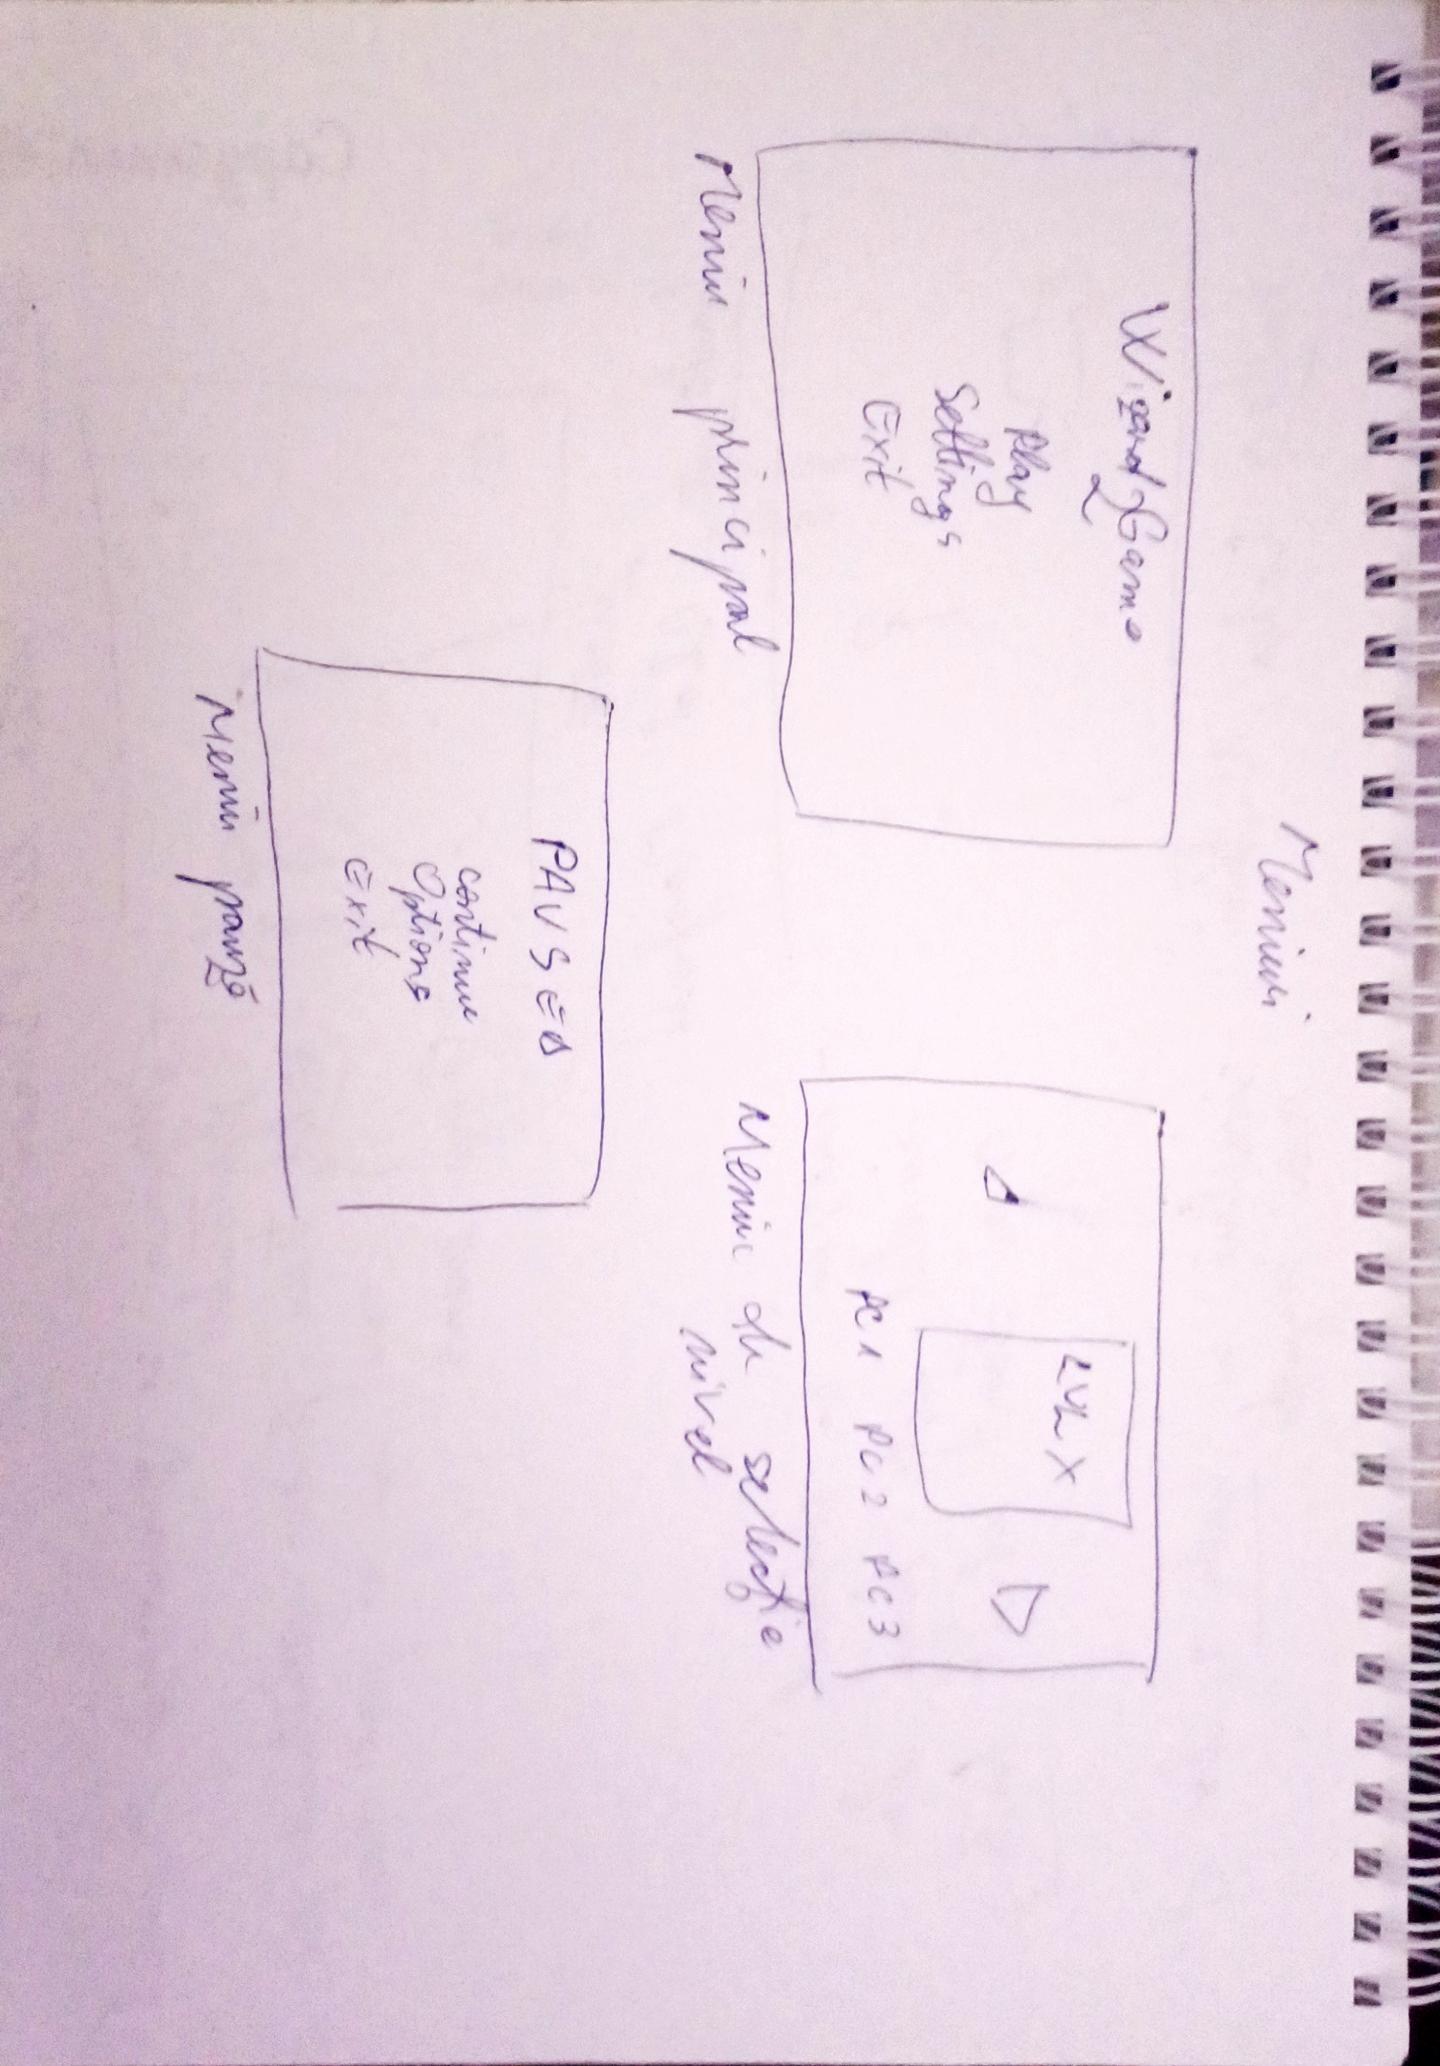 Meniuri
Wizard Game
2
Play
Settings
Exit
Meniu principal
LVL X
PC1 PC2 PC3
Meniu de selecție
nivel
PAUSED
continue
Options
Exit
Meniu pauză